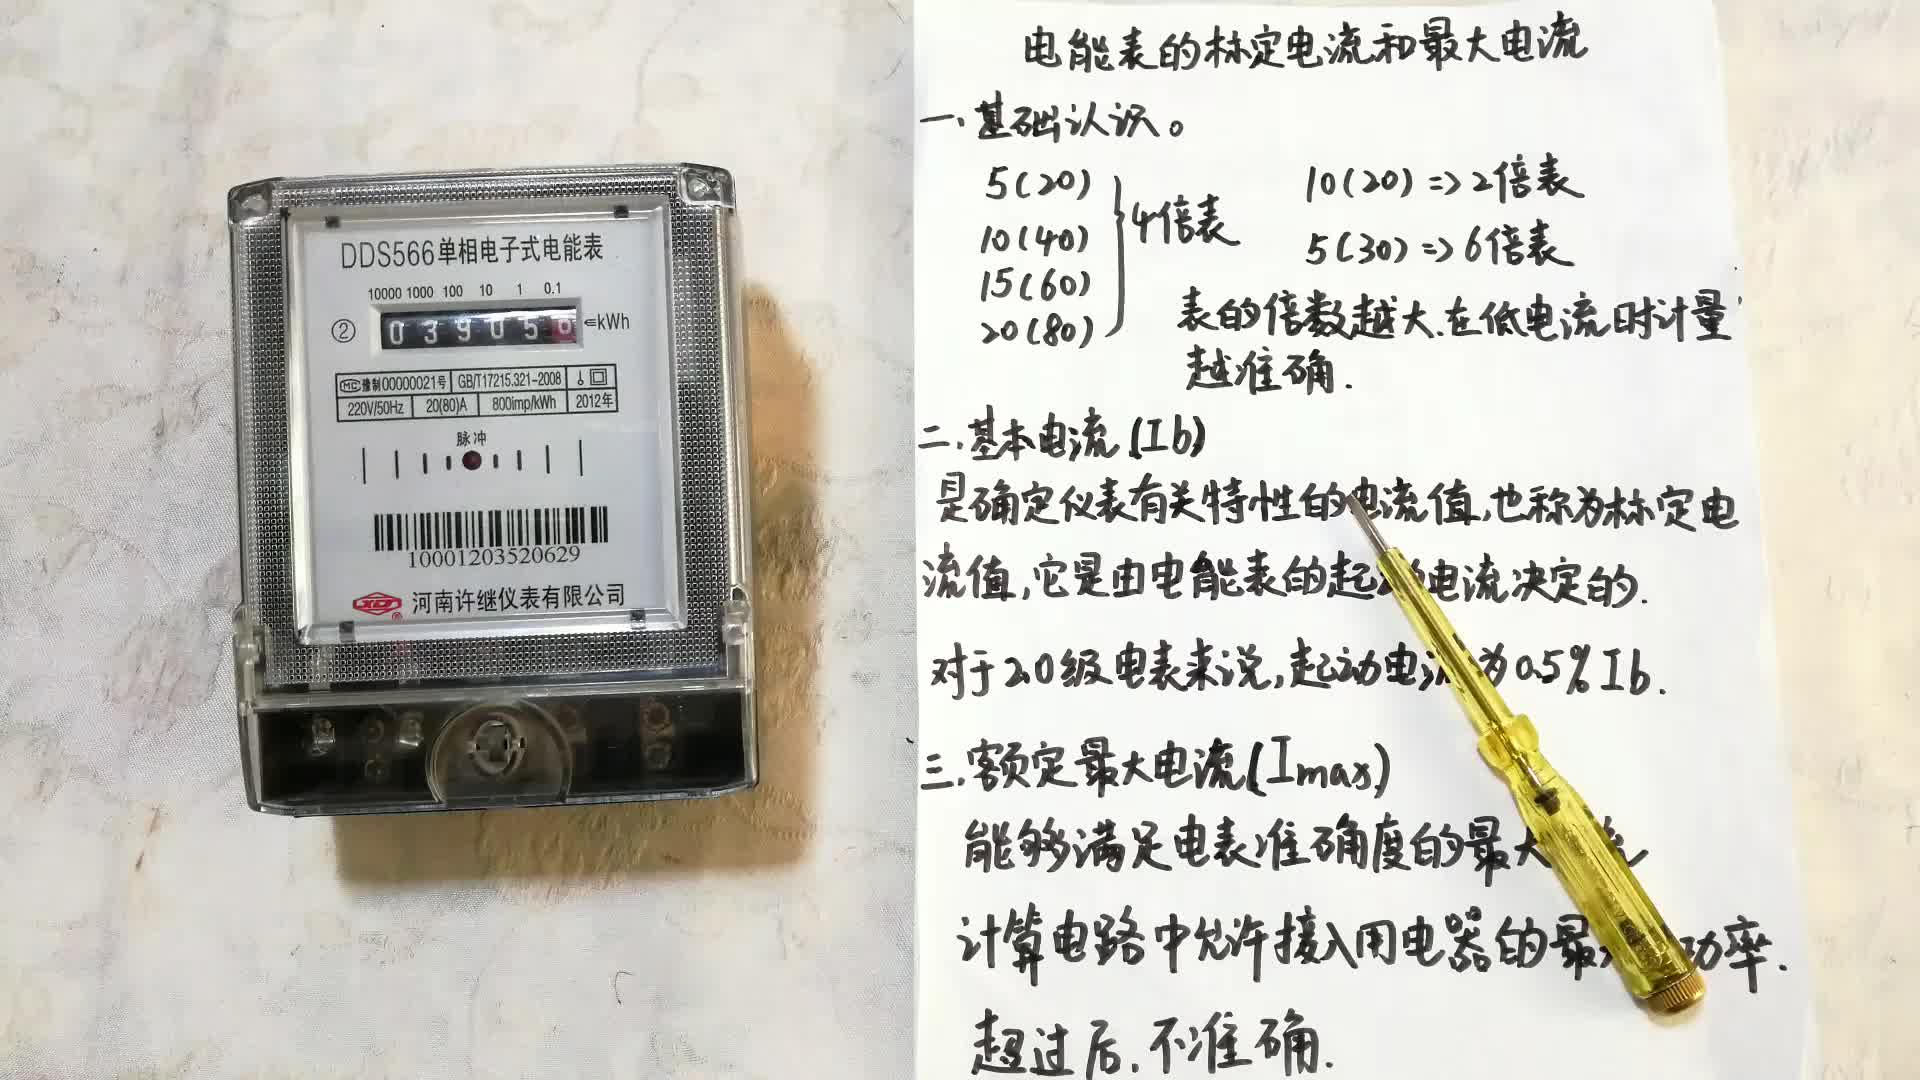 DDS566单相电子式电能表
10000 1000 100 10 1 0.1
② 039056 ⇐kWh
MC 豫制00000021号 GB/T17215.321-2008
220V/50Hz 20(80)A 800imp/kWh 2012年
脉冲
10001203520629
XJ ® 河南许继仪表有限公司
电能表的标定电流和最大电流
一、基础认识。
5(20)
10(40)
15(60)
20(80)
4倍表
10(20)=>2倍表
5(30)=>6倍表
表的倍数越大.在低电流时计量
越准确.
二.基本电流(Ib)
是确定仪表有关特性的电流值,也称为标定电
流值,它是由电能表的起动电流决定的.
对于2.0级电表来说,起动电流为0.5%Ib.
三.额定最大电流(Imax)
能够满足电表准确度的最大 流
计算电路中允许接入用电器的最大 功率.
超过后.不准确.